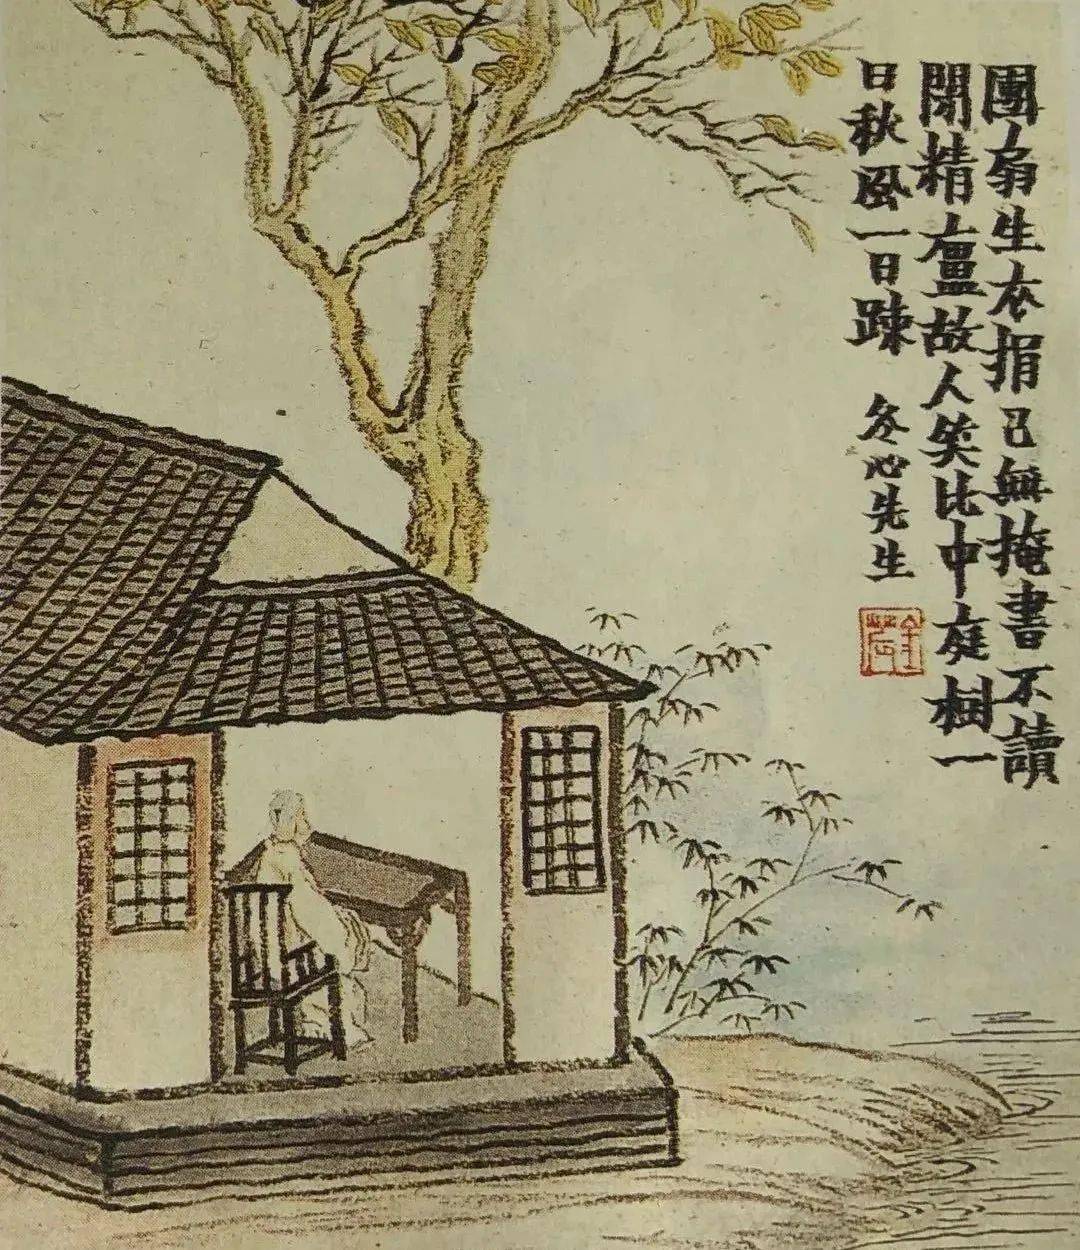 團扇生衣捐已無掩書不讀
閉精廬故人笑比中庭樹一
日秋風一日踈
冬心先生